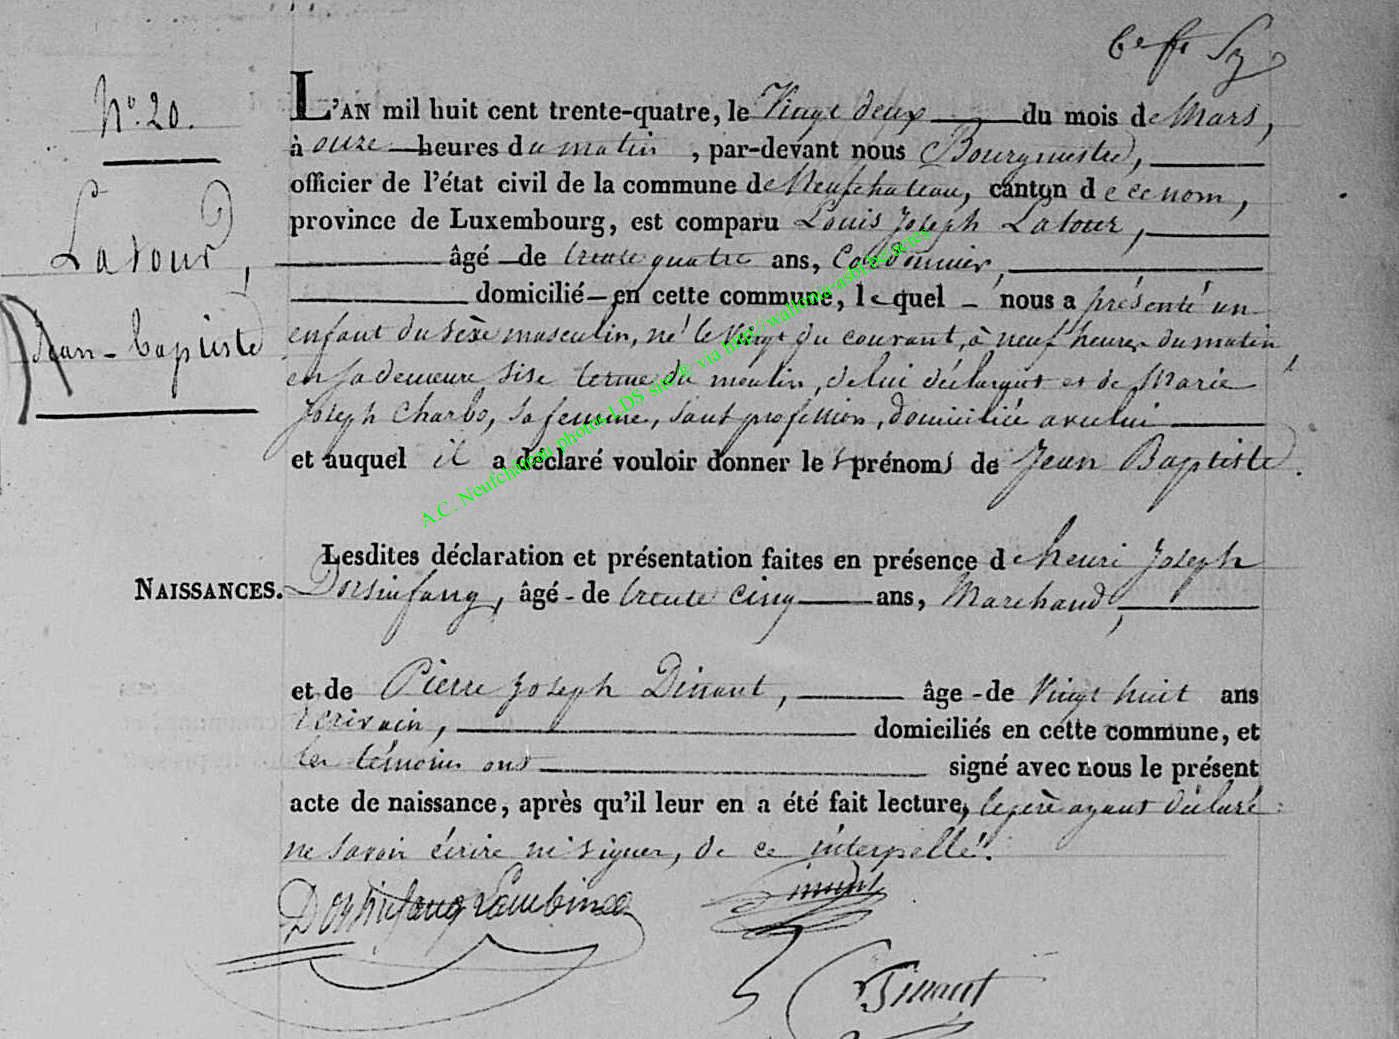 N° 20.
Latour,
Jean-Baptiste
L'AN mil huit cent trente-quatre, le Vingt deux du mois de Mars,
à onze heures du matin, par-devant nous Bourgmestre,
officier de l'état civil de la commune de Neufchateau, canton de ce nom,
province de Luxembourg, est comparu Louis Joseph Latour,
âgé de trente quatre ans, Cordonnier,
domicilié en cette commune, lequel nous a présenté un
enfant du sèxe masculin, né le Vingt du courant, à neuf heures du matin,
en sa demeure, sise terme du moulin, de lui déclarant et de Marie
Joseph Charbo, sa femme, sans profession, domiciliée avec lui
et auquel il a déclaré vouloir donner les prénoms de Jean Baptiste.
Lesdites déclaration et présentation faites en présence de henri Joseph
NAISSANCES. Dorsinfang, âgé de trente cinq ans, Marchand,
et de Pierre Joseph Dinant, âge de Vingt huit ans
écrivain, domiciliés en cette commune, et
les témoins ont signé avec nous le présent
acte de naissance, après qu'il leur en a été fait lecture, le père ayant déclaré
ne savoir écrire ni signer, de ce interpellé.
Dorsinfang Lambinet
Dinant
A.C. Neufchâteau photos LDS saisie via http://wallonia-asbl.be/actes